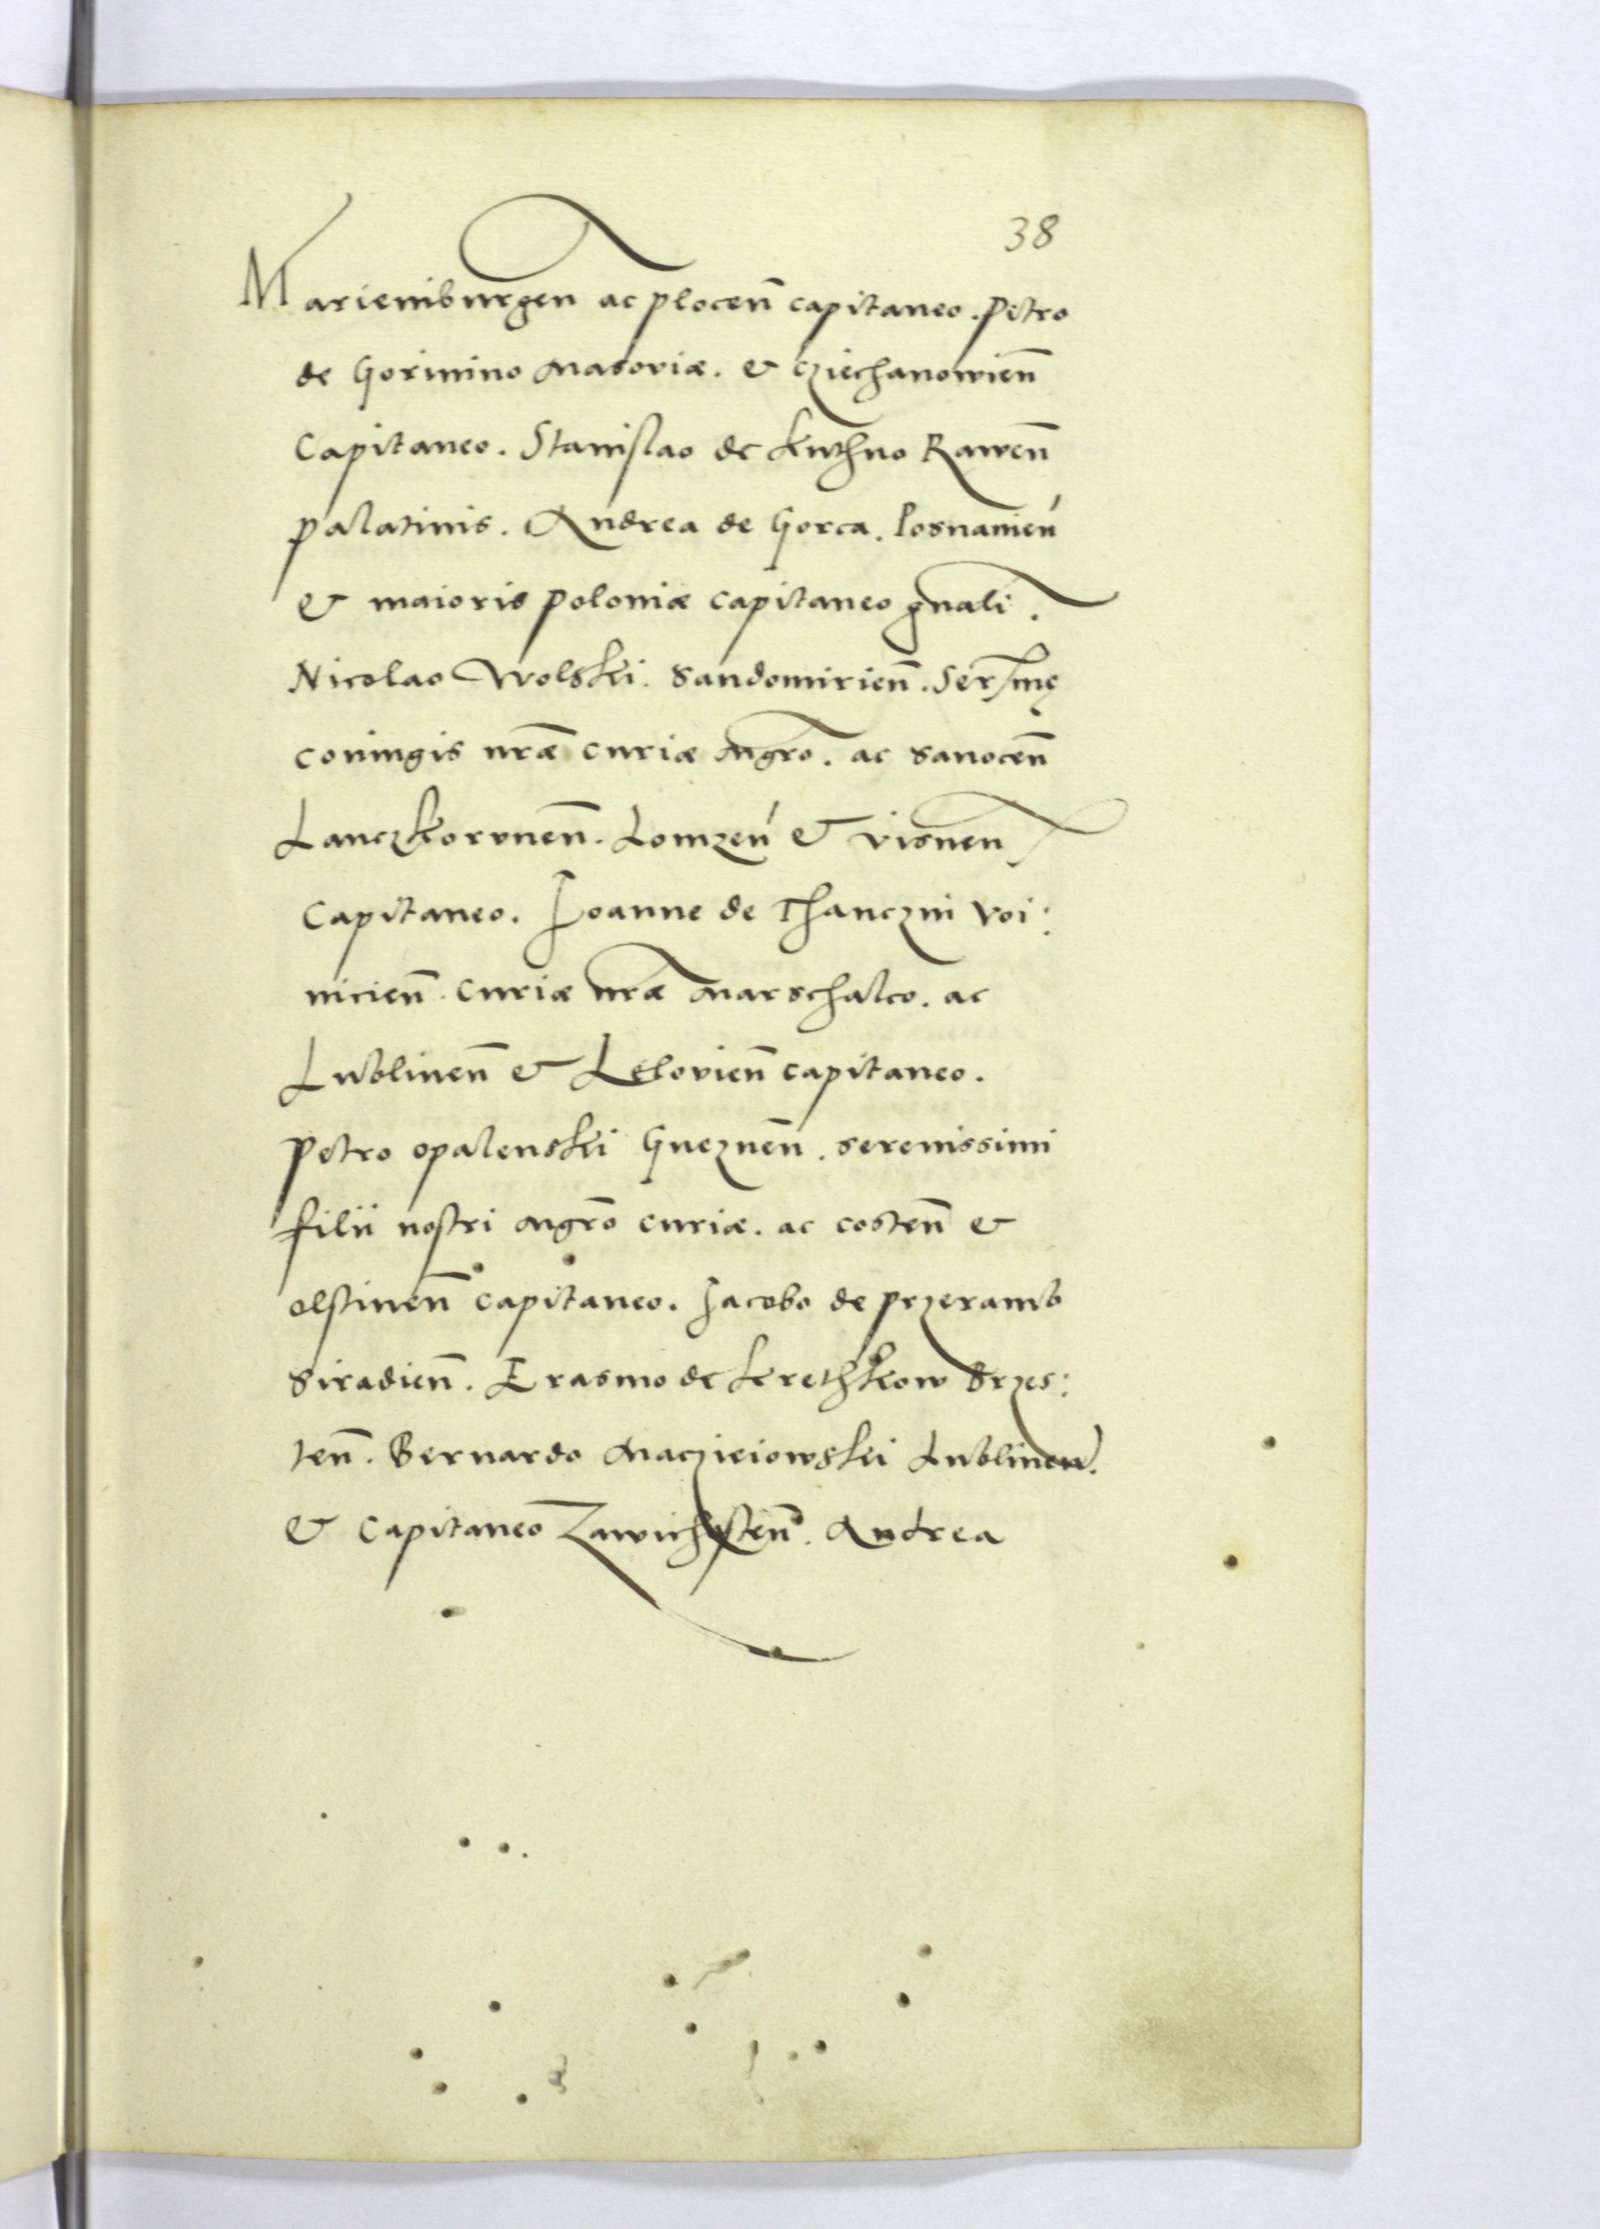 38
Marienburgen ac plocen̄ capitaneo. Petro
de Gorinino Masoviæ. & Cziechanowien̄
Capitaneo. Stanislao de Kuthno Rawen̄
palatinis. Andrea de Gorca. Posnanien̄
& maioris poloniæ capitaneo gn̄ali.
Nicolao Wolski. Sandomirien̄. Ser/mę
coniugis nr̄æ curiæ Mgr̄o. ac Sanocen̄
Lanczkorunen̄. Lomzen̄ & Visnen
Capitaneo. Ioanne de Thanczin Voi:
nicien̄. Curiæ nr̄æ Marschalco. ac
Lublinen̄ & Lelovien̄ capitaneo.
Petro opalenski Gneznen̄. serenissimi
filii nostri Mgr̄o curiæ. ac costen̄ &
olstinen̄ capitaneo. Jacobo de przeramb
Siradien̄. Erasmo de Krethkow Brzes:
ten̄. Bernardo Maczieiowski Lublinen̄.
& Capitaneo Zawichosten̄. Andrea